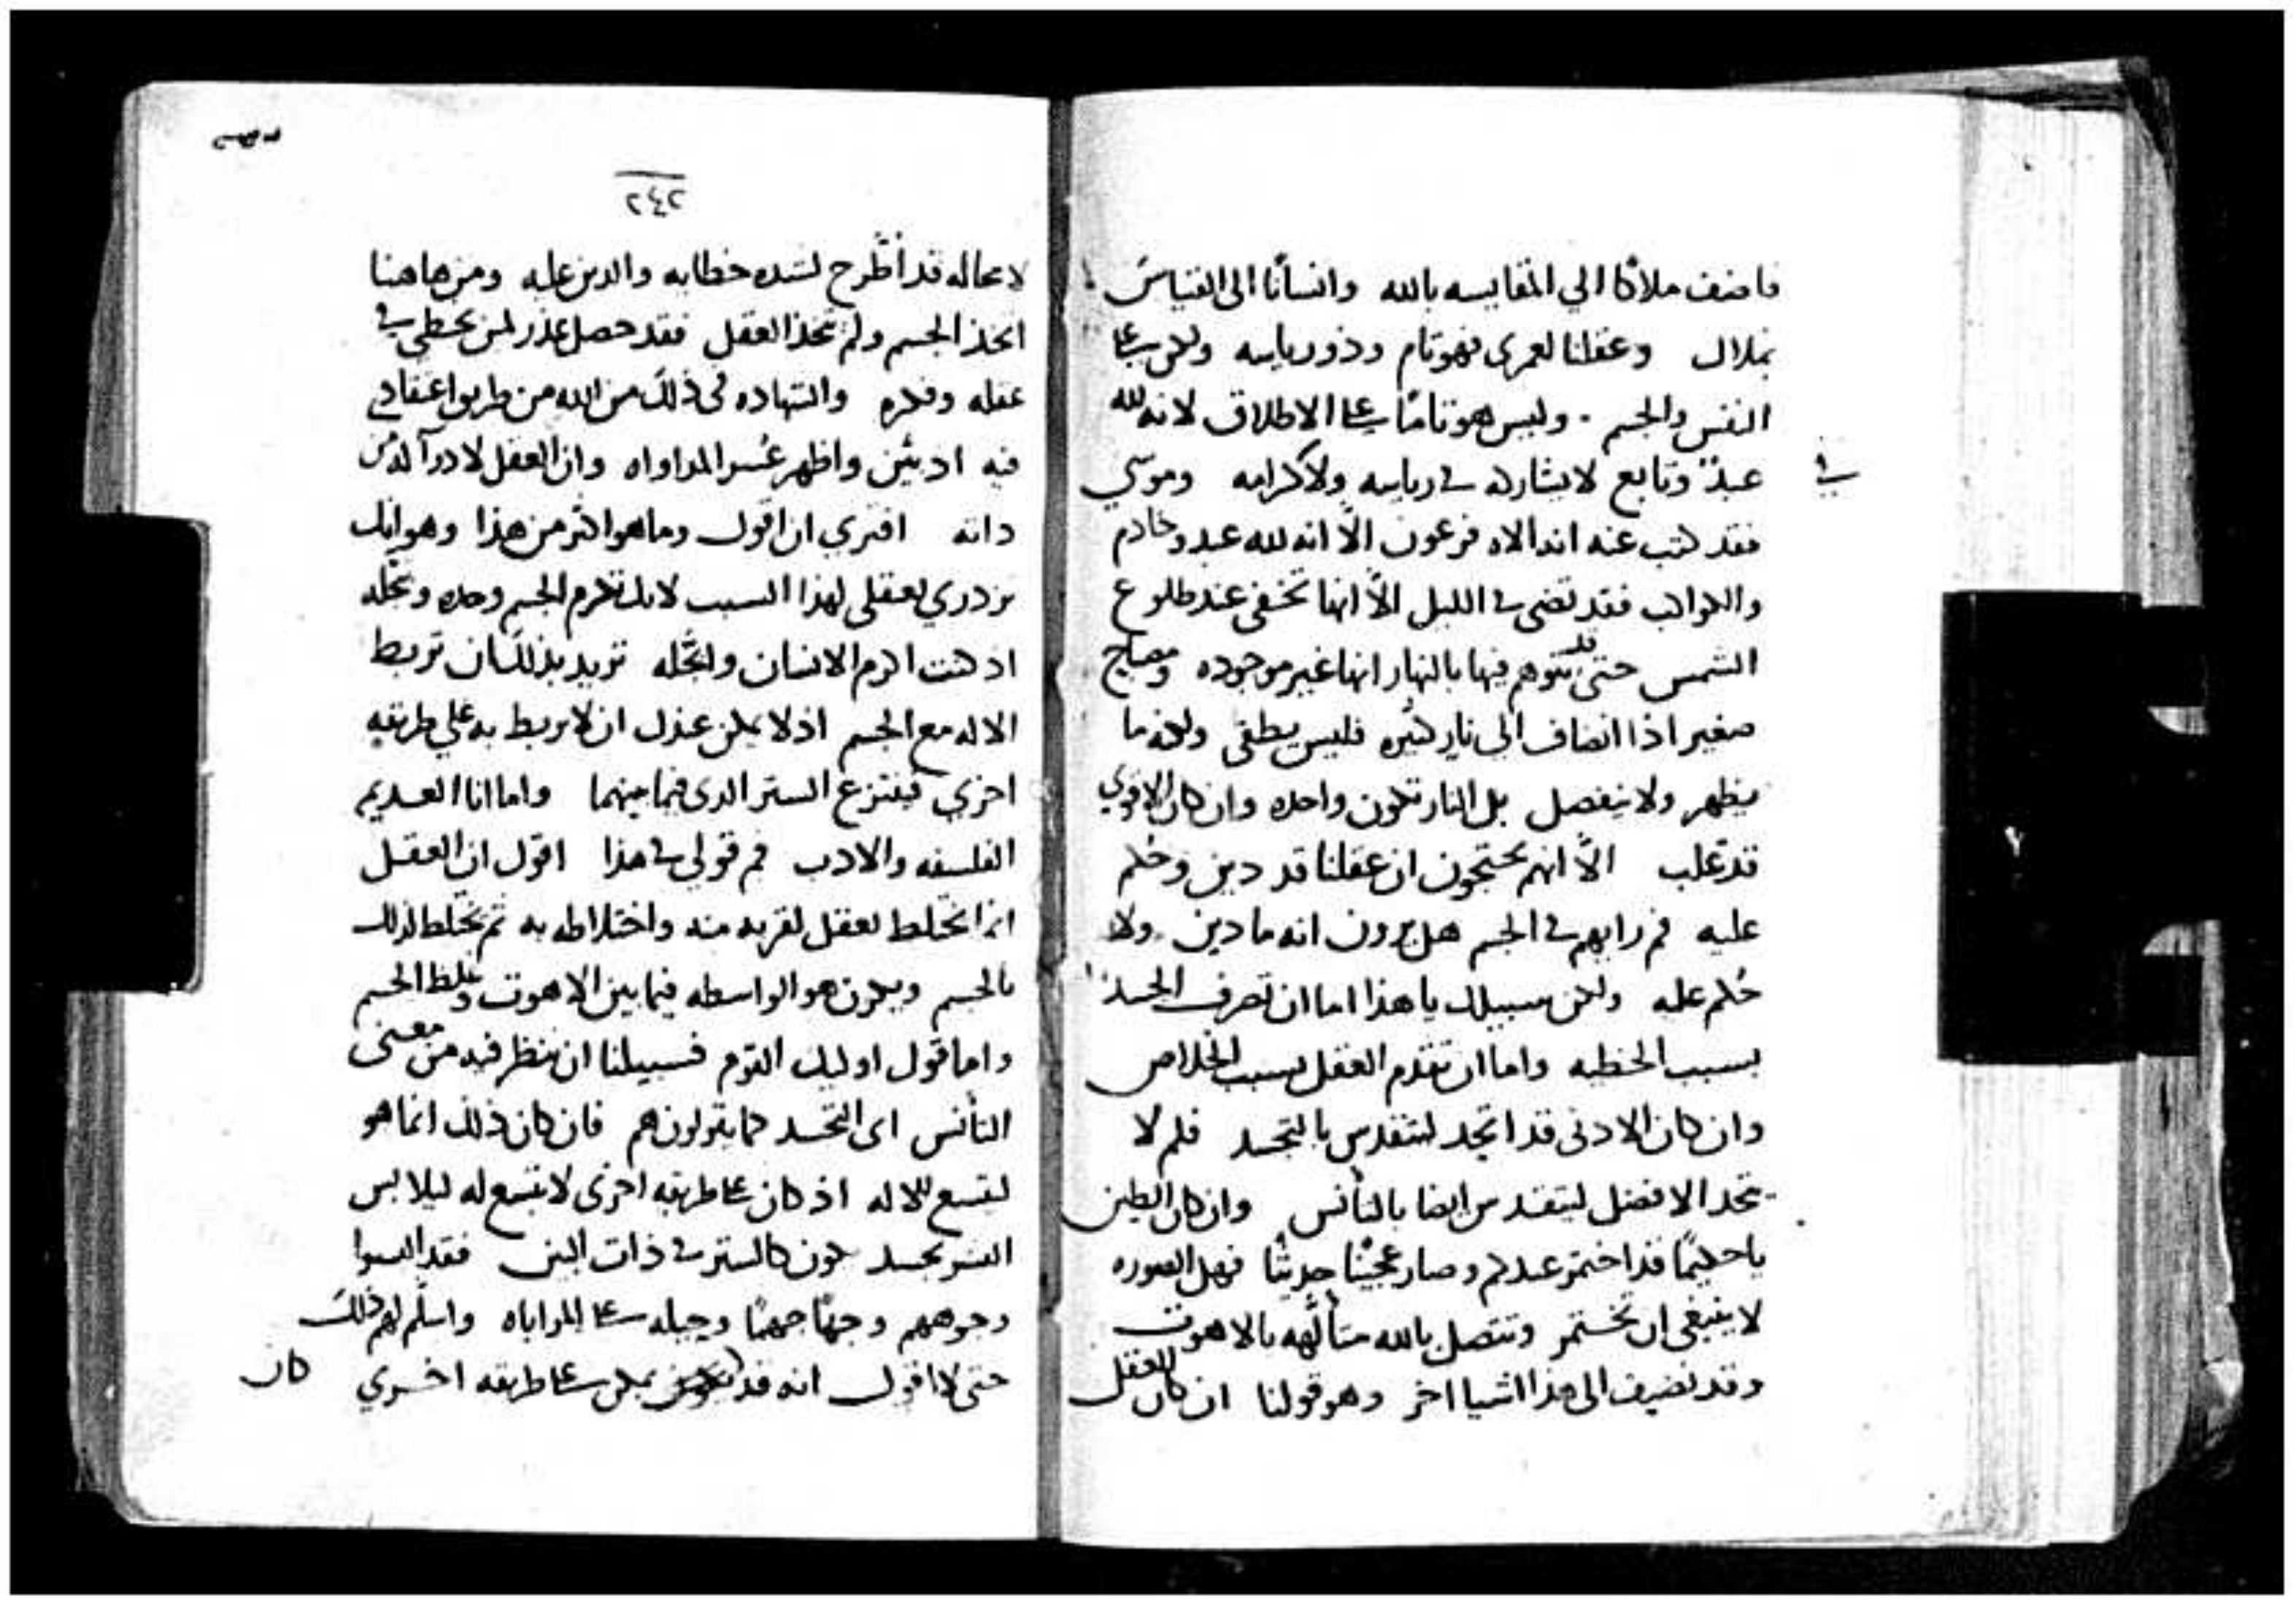 فاضف ملاكا الي المقايسه بالله وانسانا الى القياس
بملاك وعقلنا لعمرى فهو تام وذو رياسه ولكن على
النفس والجسم . وليس هو تامًا على الاطلاق لانه لله
عبدٌ وتابع لا يشاركه في رياسه ولا كرامه وموسي
في
فقد كتب عنه انه الاه فرعون الّا انه لله عبد وخادم
والكواكب فقد تضى في الليل الّا انها تخفى عند طلوع
الشمس حتى قد يتوهم فيها بالنهار انها غير موجوده ومصباح
صغير اذا انضاف الى نار كبيره فليس يطفى ولكنه ما
يظهر ولا ينفصل بل النار تكون واحده وان كان الاقوي
قد غلب الّا انهم يحتجون ان عقلنا قد دين وحُكم
عليه فم رايهم في الجسم هل يرون انه ما دين ولا
حُكم عليه ولكن سبيلك يا هذا اما ان تصرف الجسد
بسبب الخطيه واما ان تقدم العقل بسبب الخلاص
وان كان الادنى قد اتخد ليتقدس بالتجسد فلم لا
يتخد الافضل ليتقدس ايضا بالتأنس وان كان الطين
يا حكيمًا قد اختمر عندكم وصار عجينًا جديدًا فهل الصوره
لا ينبغى ان تختمر وتتصل بالله متألّهه بالاهوت
وقد نضيف الى هذا اشيا اخر وهو قولنا ان كان العقل
٢٤٢
لا محاله قد اُطّرح لشده خطايه والدين عليه ومن هاهنا
اتخذ الجسم ولم يتخذ العقل فقد حصل عذر لمن يخطي في
عقله وفكره والشهاده في ذلك من الله من طريق اعتقادكم
فيه اد بيّن واظهر عُسر المداواه وان العقل لا دوآ له من
داته افتري ان اقول وما هو اكثر من هذا وهو انك
تزدري بعقلى لهذا السبب لانك تكرم الجسم وحده وتجلّه
اد كنت اكرم الانسان واجلّه تريد بذلك ان تربط
الاله مع الجسم اذ لا يمكن عندك ان لا يربط به على طريقه
اخري فينتزع الستر الدى فيما بينهما واما انا العديم
الفلسفه والادب فم قولي في هذا اقول ان العقل
انما يختلط بعقل لقربه منه واختلاطه به ثم يختلط لذلك
بالجسم ويكون هو الواسطه فيما بين الاهوت وغلظ الجسم
واما قول اوليك القوم فسبيلنا ان ننظر فيه من معنى
التأنس اى التجسد كما يقولون هم فان كان ذلك انما هو
ليتسع للاله اذ كان على طريقه اخرى لا يتسع له ليلابس
البشر بجسد يكون كالستر في ذات البين فقد البسوا
وجوههم وجهًا جهمًا وحيله على المراياه واسلّم لهم ذلك
حتى لا اقول انه قد يمكن على طريقه اخري
كان